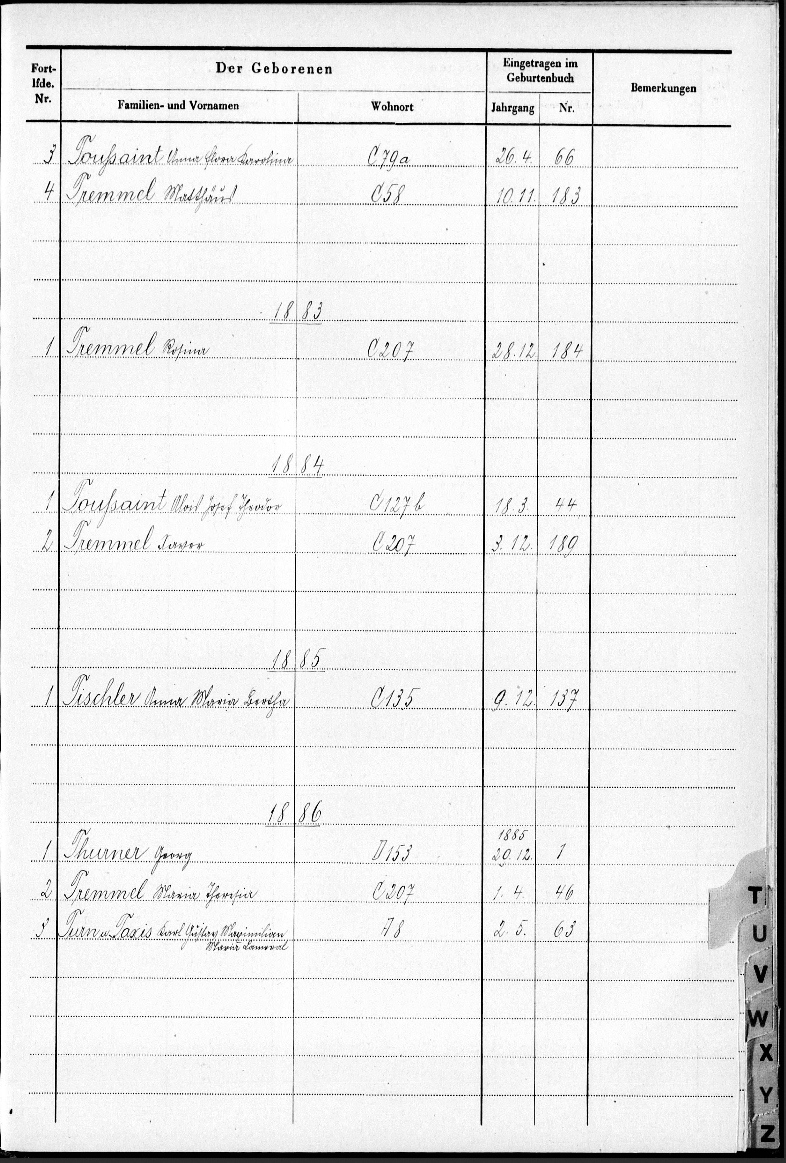 Fort-
lfde.
Nr.
Der Geborenen
Eingetragen im
Geburtenbuch
Bemerkungen
Familien- und Vornamen Wohnort Jahrgang Nr.
3 Toussaint Anna Flora Karolina C 79a 26. 4. 66
4 Tremmel Matthäus C 58 10. 11. 183
1883
1 Tremmel Rosina C 207 28. 12. 184
1884
1 Toussaint Alois Josef Theodor C 127 b 18. 3. 44
2 Tremmel Xaver C 207 3. 12. 189
1885
1 Tischler Anna Maria Bertha C 135 9. 12. 137
1886
1885
1 Thurner Georg D 153 29. 12. 1
2 Tremmel Maria Theresia C 207 1. 4. 46
3 Turn u. Taxis Karl Gustav Maximilian 8 2. 5. 63
Maria Lamoral
T
U
V
W
X
Y
Z